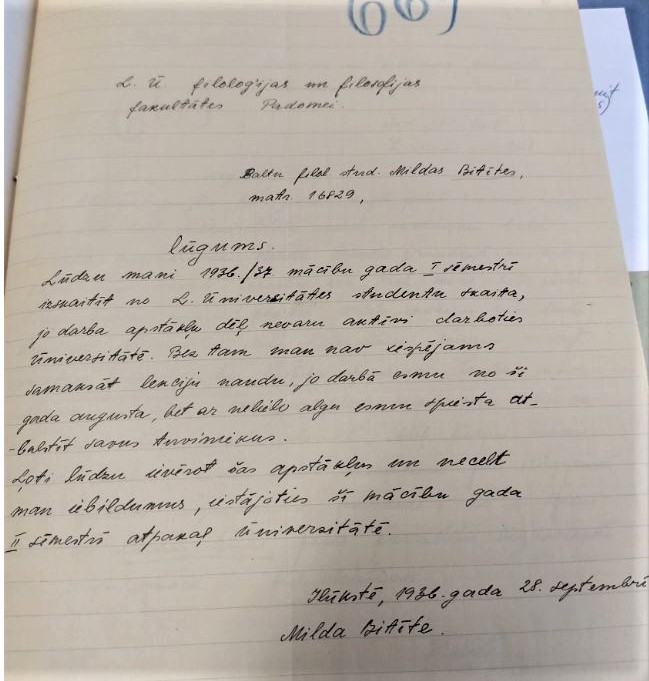 66)
L. Ū. filoloģijas un filosofijas
fakultātes Padomei.
Baltu filol stud. Mildas Bitītes,
matr. 16829,
lūgums.
Lūdzu mani 1936./37 mācību gada I sēmestrī
izskaitīt no L. Ūniversitātes studentu skaita,
jo darba apstākļu dēļ nevaru aktīvi darboties
Ūniversitātē. Bez tam man nav iespējams
samaksāt lekciju naudu, jo darbā esmu no šī
gada augusta, bet ar nelielo algu esmu spiesta at-
-balstīt savus tuviniekus.
Ļoti lūdzu ievērot šos apstākļus un necelt
man iebildumus, iestājoties šī mācību gada
II sēmestrī atpakaļ Ūniversitātē.
Ilūkstē, 1936. gada 28. septembrī
Milda Bitīte.